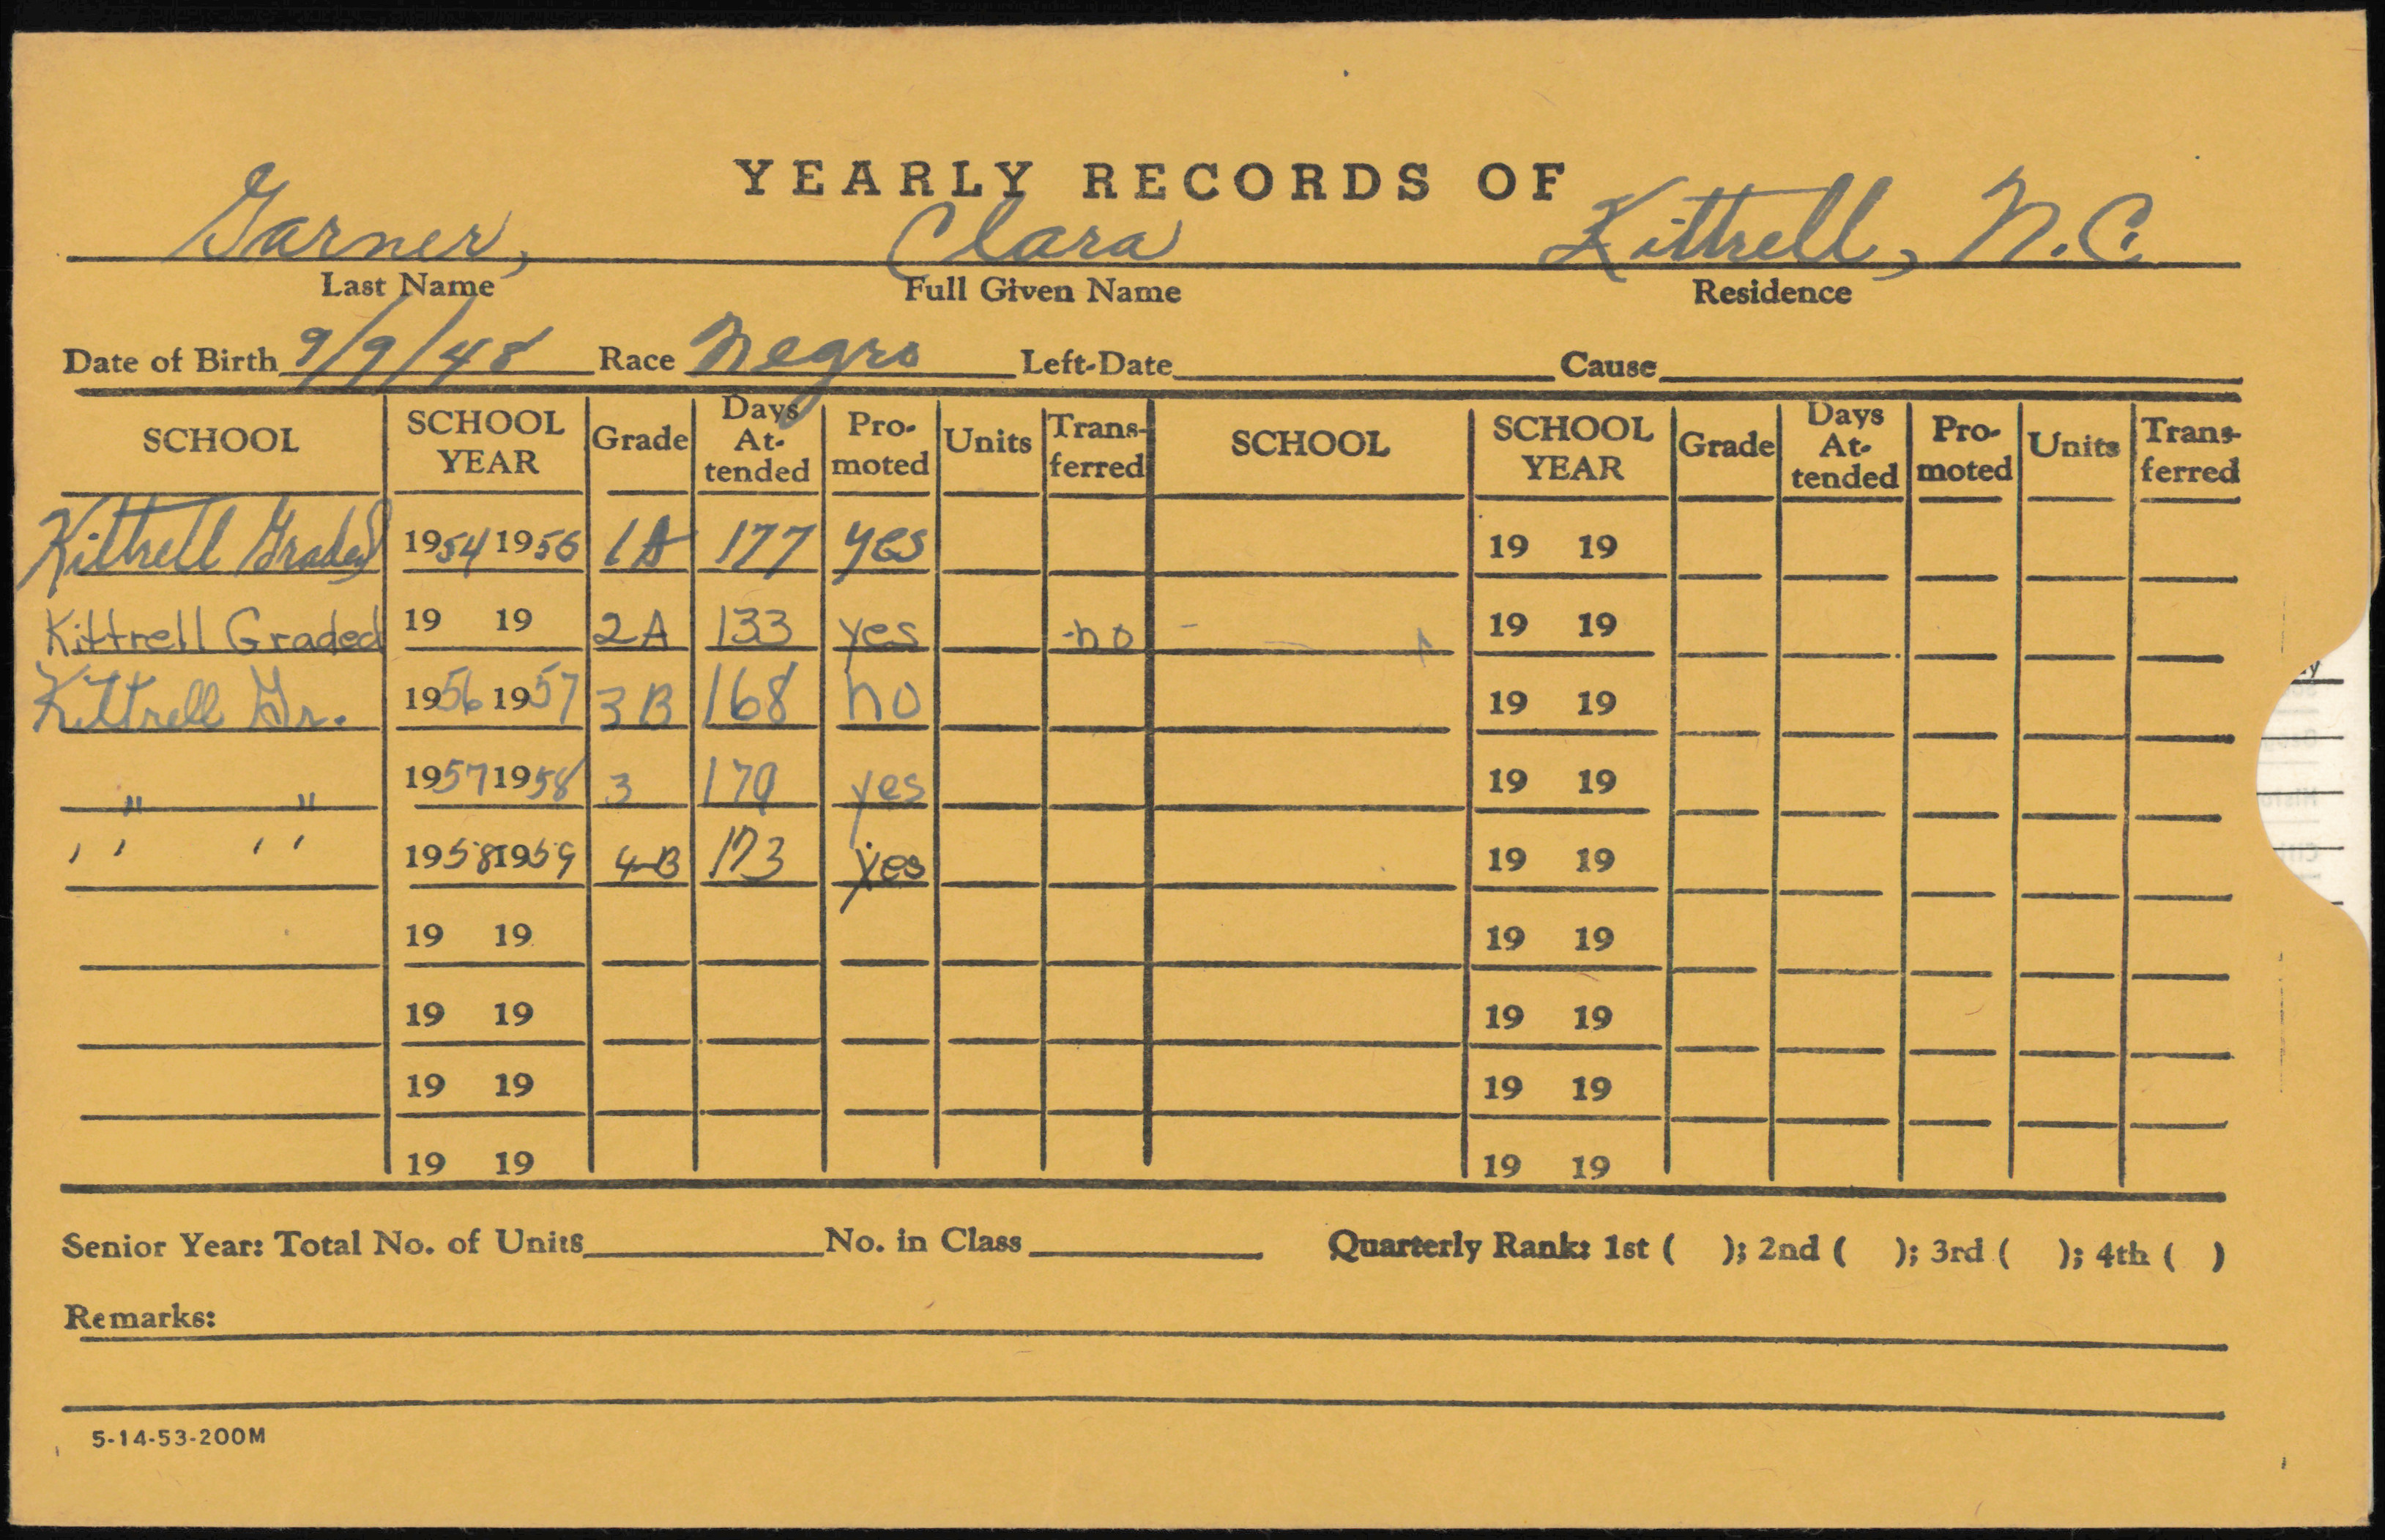 YEARLY RECORDS OF
Garner, Clara Kittrell, N.C.
Last Name Full Given Name Residence
Date of Birth 9/9/48 Race Negro Left-Date Cause
SCHOOL SCHOOL YEAR Grade Days At-tended Pro-moted Units Trans-ferred SCHOOL SCHOOL YEAR Grade Days At-tended Pro-moted Units Trans-ferred
Kittrell Graded 1954 1956 1A 177 yes 19 19
Kittrell Graded 19 19 2A 133 yes no 19 19
Kittrell Gr. 1956 1957 3B 168 no 19 19
" " 1957 1958 3 179 yes 19 19
'' '' 1958 1959 4B 173 yes 19 19
19 19 19 19
19 19 19 19
19 19 19 19
19 19 19 19
Senior Year: Total No. of Units No. in Class Quarterly Rank: 1st ( ); 2nd ( ); 3rd ( ); 4th ( )
Remarks:
5-14-53-200M